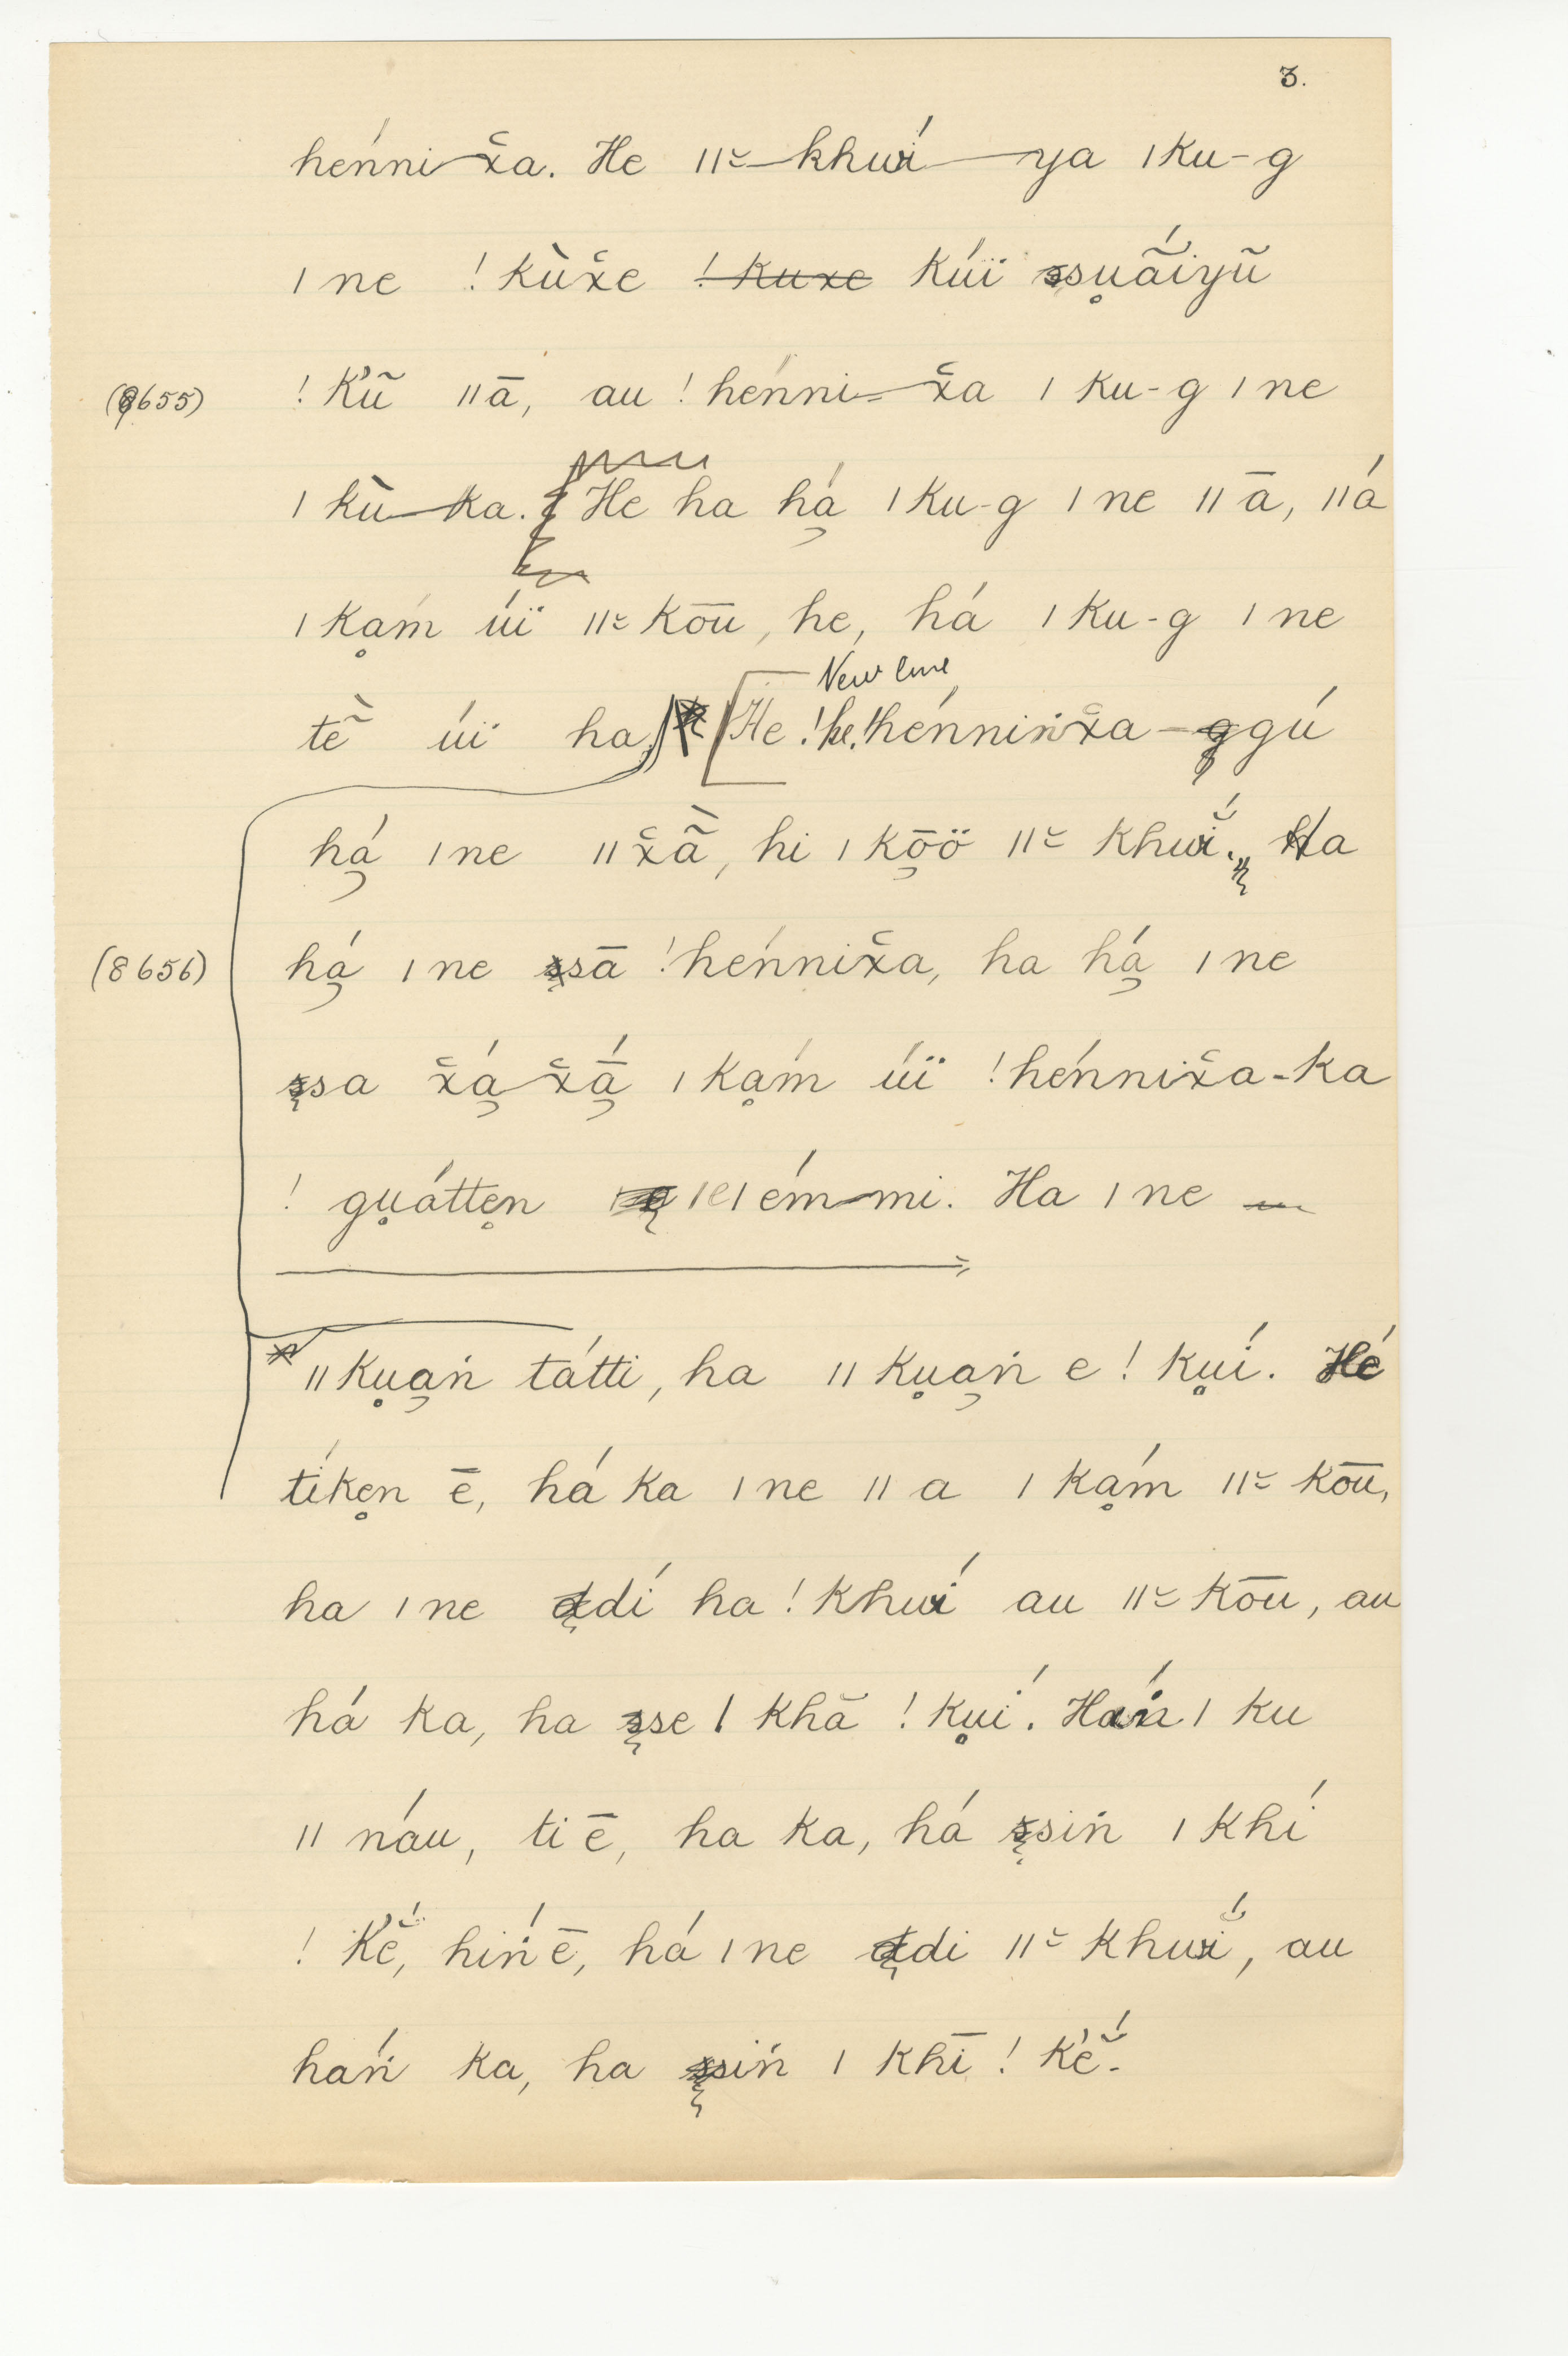 3.
hén̄ni-x̆a. He ǁ̆-khwí-ya ǀku-g
ǀne !kùx̆e !kuxe kúï ssu̥ā́ĩyũ
(8655) !k̓ũ ǁā, au !hénni-x̆a ǀku-g ǀne
ǀkù-ka. He ha há̱ ǀku-g ǀne ǁā, ǁá
ǀkḁḿ úï ǁ̆kōū, he, há ǀku-g ǀne
New line
tẽ̀ úï ha, He !he, !hénniṅx̆a-ggú
há̱ ǀne ǁx̆ã̀, hi ǀkō̱ö ǁ̆khwĭ́. Ha
(8656) há̱ ǀne ssā !hénnix̆a, ha há̱ ǀne
ssa x̆á̱-x̆ā̱́ ǀkḁḿ úï !hénnix̆a-ka
!gu̥átte̥n ǀeǀém-mi. Ha ǀne
ǁku̥a̱ṅ tátti, ha ǁku̥a̱ṅ e !ku̥í. Hé
tíke̥n ē, há ka ǀne ǁa ǀkḁḿ ǁ̆kōū,
ha ǀne ddí ha !khwí au ǁ̆kōū, au
há ka, ha sse ǀkhā̆ !ku̥í. Háṅ ǀku
ǁnáu, ti ē, ha ka, há ssiṅ ǀkhí
!k̓ĕ́, hiṅ́ ē, há ǀne ddi ǁ̆khwĭ́, au
háṅ ka, ha ssiṅ ǀkhī !k̓ĕ́.